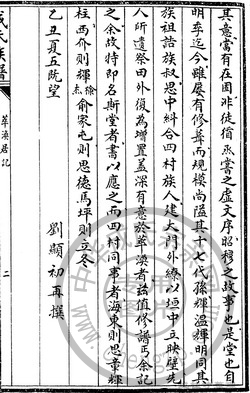 其意富有在固非徒循烝嘗之虛文序昭穆之故事也是堂也自
明季迄今雖屢有修葺而規模尚隘其十七代孫輝溫輝明同其
族祖誥族叔思中糾合四村族人建大門外繚以垣中立映壁先
人所遺祭田外復為增置蓋深有意於萃渙者誥值修譜丐余記
之余故特即名斯堂者書以應之而四村同事者海東則思章輝
柱西介則輝 徐焘 俞家屯則思德馬坪則立冬
乙丑夏五既望
劉顯初再撰
族譜
萃渙居記
二